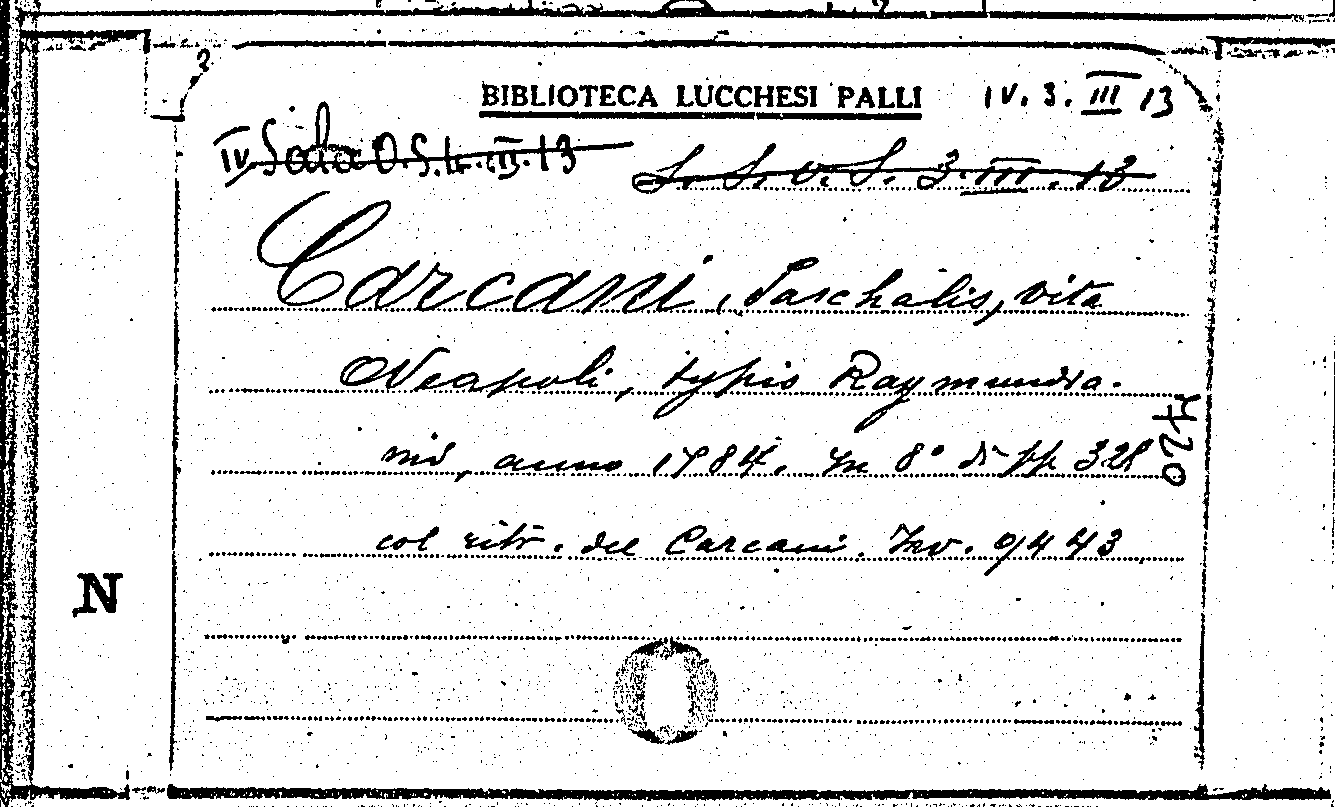 BIBLIOTECA LUCCHESI PALLI IV. 3. III 13
IV. Sala O. S. L. III. 13
S. S. v. S. 3. III. 13
Carcani, Paschalis, vita
Neapoli, typis Raymundia-
nis, anno 1784. In 8° di pp 328
col ritr. del Carcani. Inv. 9443
420
N